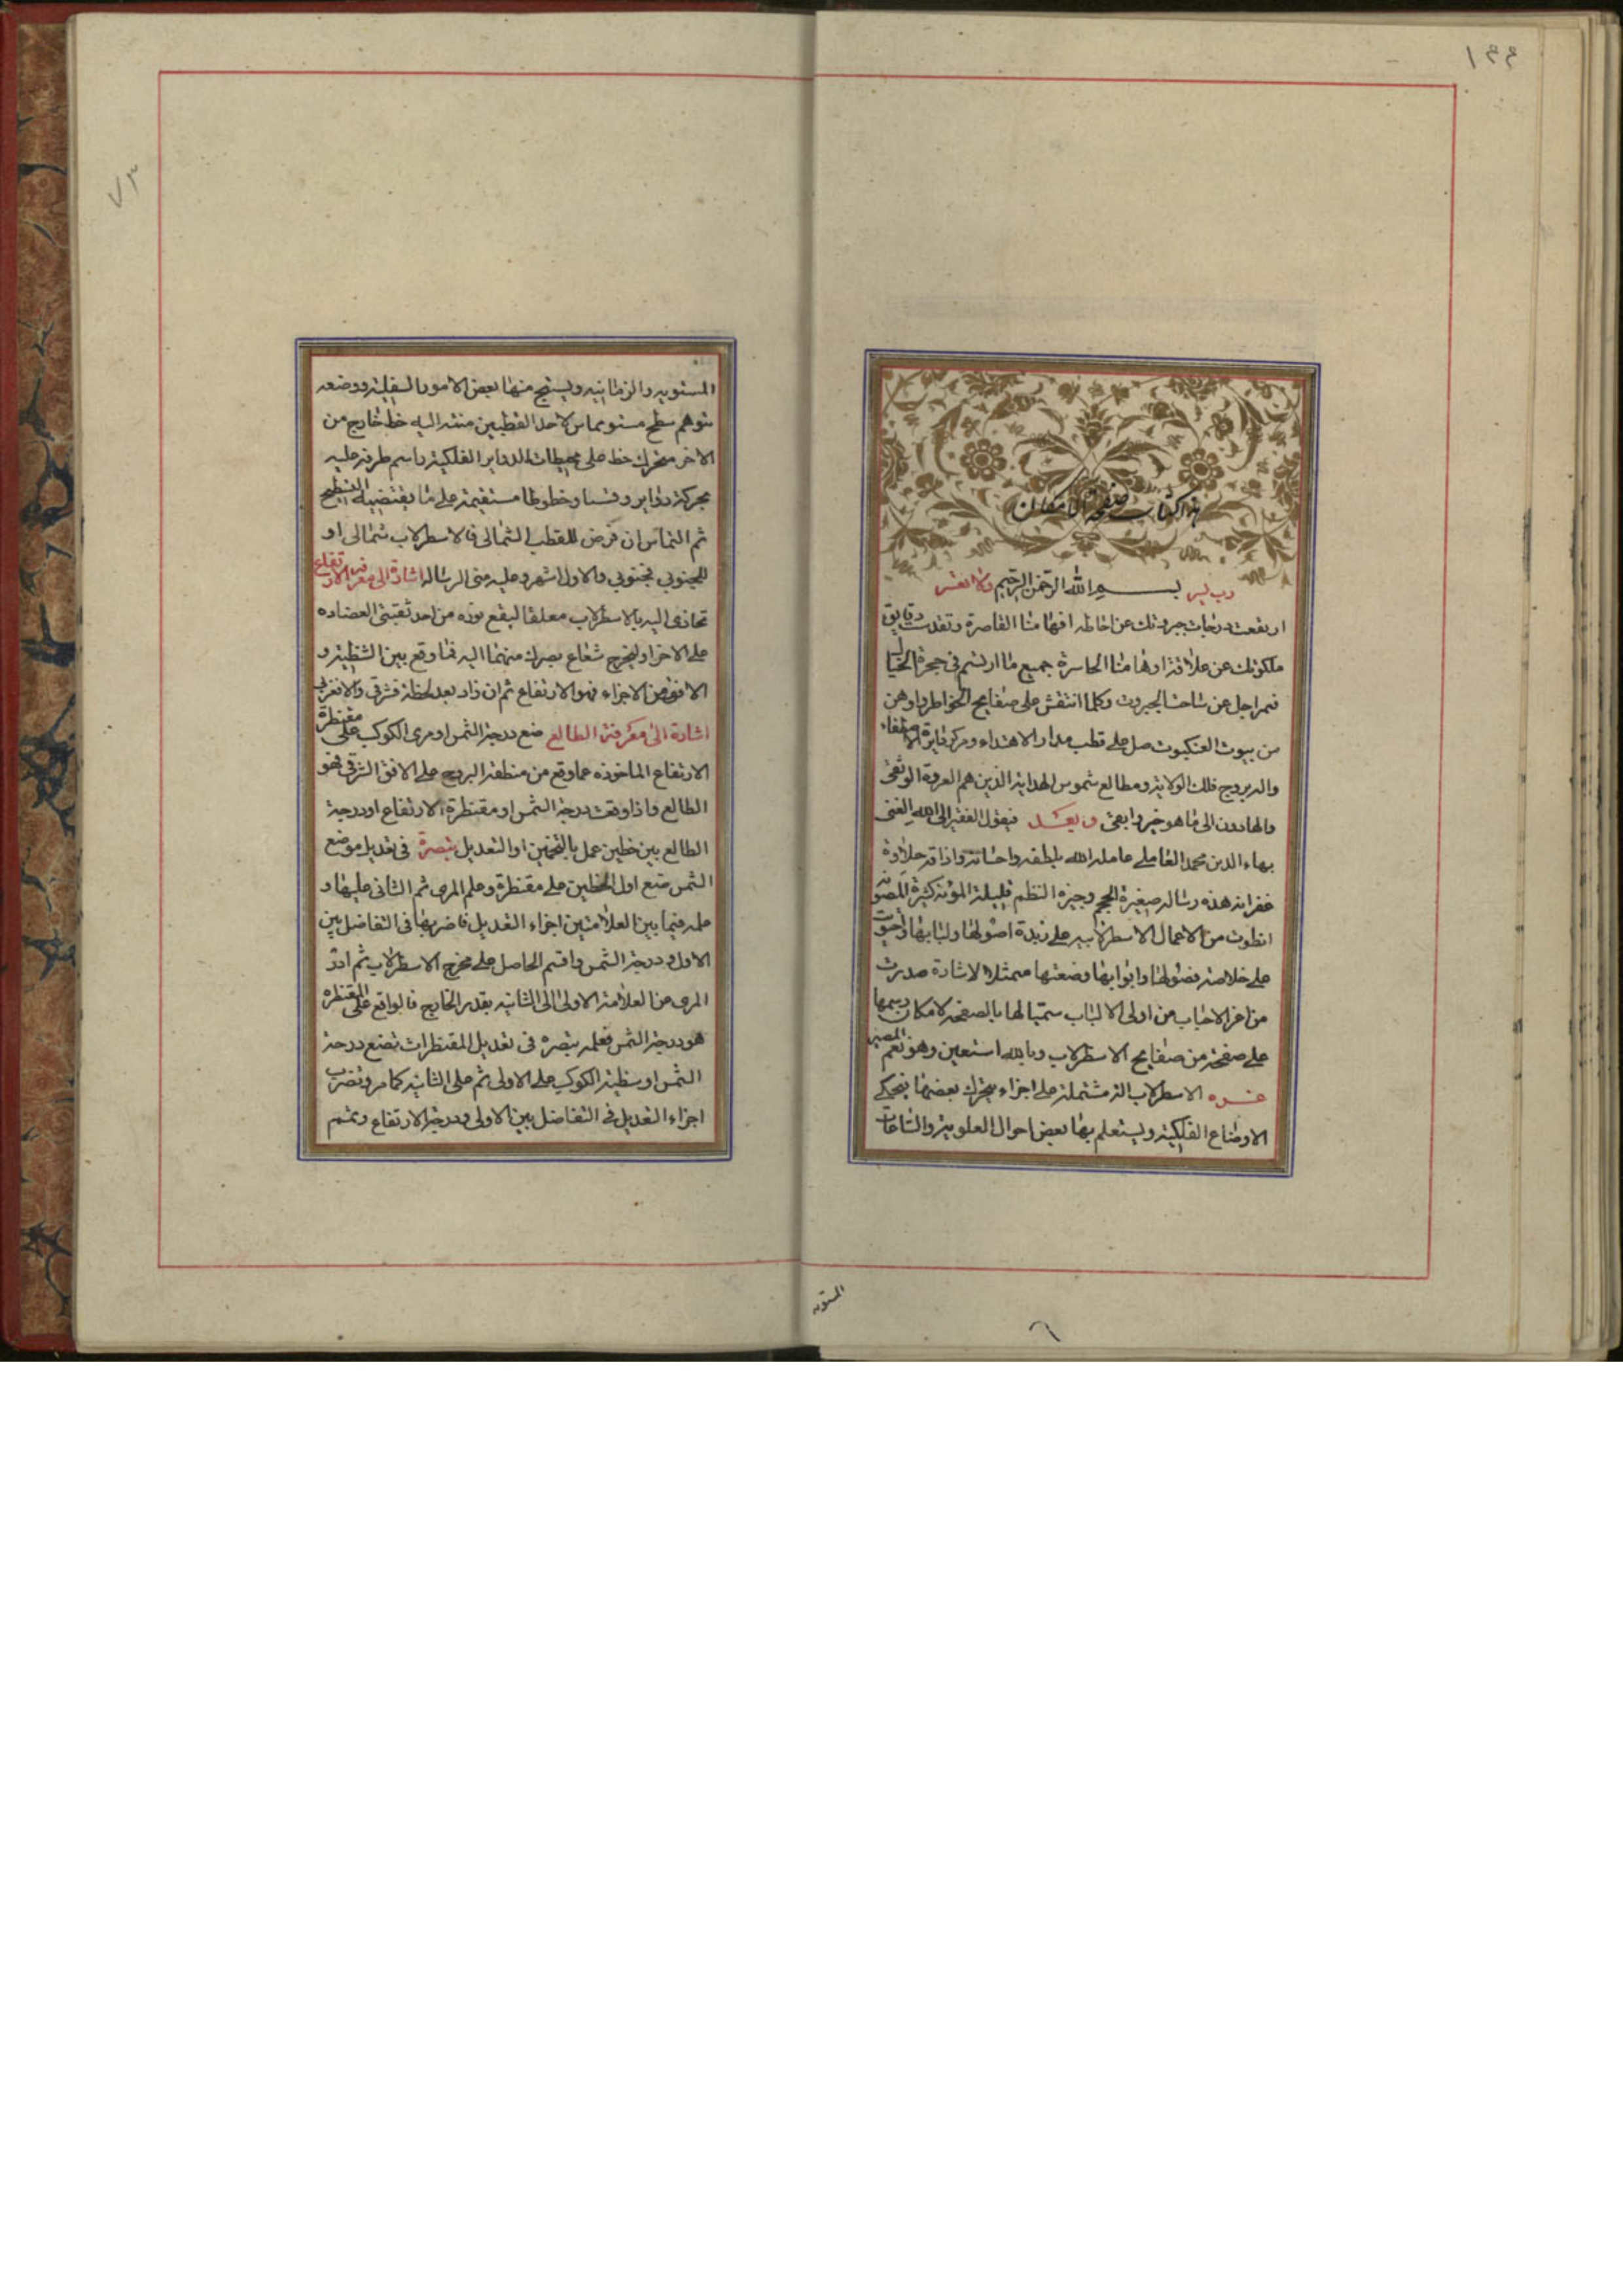 ١٤٤
هذا كتاب صفحة الامكان
رب يسر بسم الله الرحمن الرحيم ولا تعسر
ارتفعت درجات جبروتك عن احاطه افهامنا القاصرة وتقدست دقايق
ملكوتك عن علاقة اوهامنا الحاسرة جميع ما ارتسم في حجرة الخيال
فهو اجل عن ساحت الجبروت وكلما انتقش على صفايح الخواطر واوهن
من بيوت العنكبوت صل على قطب مدار الاهتداء ومركز دايرة الاصطفاء
واله بروج فلك الولاية ومطالع شموس الهداية الذين هم العروة الوثقى
والهادون الى ما هو خير وابقى وبعد فيقول الفقير الى الله الغنى
بهاء الدين محمد العاملي عامله الله بلطفه واحسانه واذاقه حلاوة
غفرانه هذه رساله صغيرة الحجم وجيزه النظم قليلة المؤنه كثيرة المعونه
انطوت من الاعمال الاسطرلابيه على زبدة اصولها ولبابها واحتوت
على خلاصة فصولها وابوابها وضعتها ممتثلا لاشارة صدرت
من اعز الاحباب من اولى الالباب سميتها بالصفحه لامكان رسمها
على صفحة من صفايح الاسطرلاب وبالله استعين وهو نعم المعين
الاسطرلاب الة مشتملة على اجزاء يتحرك بعضها فيحكى
الاوضاع الفلكية ويستعلم بها بعض احوال العلوية والساعات
المستويه
٦
المستويه والزمانيه ويستنتج منها بعض الامور السفلية ووضعه
بتوهم سطح مستو مماس لاحد القطبين منته اليه خط خارج من
الاخر متحرك خط على محيطات الدواير الفلكية راسم طرفه عليه
بحركته دواير وقسيا وخطوطا مستقيمة على ما يقتضيه التسطيح
ثم التماس ان فرض للقطب الشمالى فالاسطرلاب شمالى او
للجنوبي فجنوبي والاول اشهر وعليه مبنى الرساله اشارة الى معرفة الارتفاع
تحاذى اليه بالاسطرلاب معلقا ليقع نوره من احد ثقبتى العضاده
على الاخر او ليخرج شعاع بصرك منهما اليه فما وقع بين الشظية و
الافق من الاجزاء فهو الارتفاع ثم ان زاد بعد لحظة فشرقي والا فغربي
اشارة الى معرفة الطالع ضع درجة الشمس او مرى الكوكب على مقنطرة
الارتفاع الماخوذه فما وقع من منطقة البروج على الافق الشرقى فهو
الطالع واذا وقعت درجة الشمس او مقنطرة الارتفاع او درجة
الطالع بين خطين عمل بالتخمين او التعديل تبصرة في تعديل موضع
الشمس تضع اول الخطين على مقنطرة وعلم المرى ثم الثانى عليها و
علمه فيما بين العلامتين اجزاء التعديل فاضربها فى التفاضل بين
الاول ودرجة الشمس واقسم الحاصل على مخرج الاسطرلاب ثم ادر
المرى من العلامة الاولى الى الثانيه بقدر الخارج فالواقع على المقنطره
هو درجة الشمس فعلمه تبصره فى تعديل المقنطرات تضع درجة
الشمس او شظية الكوكب على الاولى ثم على الثانيه كما مر وتضرب
اجزاء التعديل في التفاضل بين الاولى ودرجة الارتفاع وتتمم